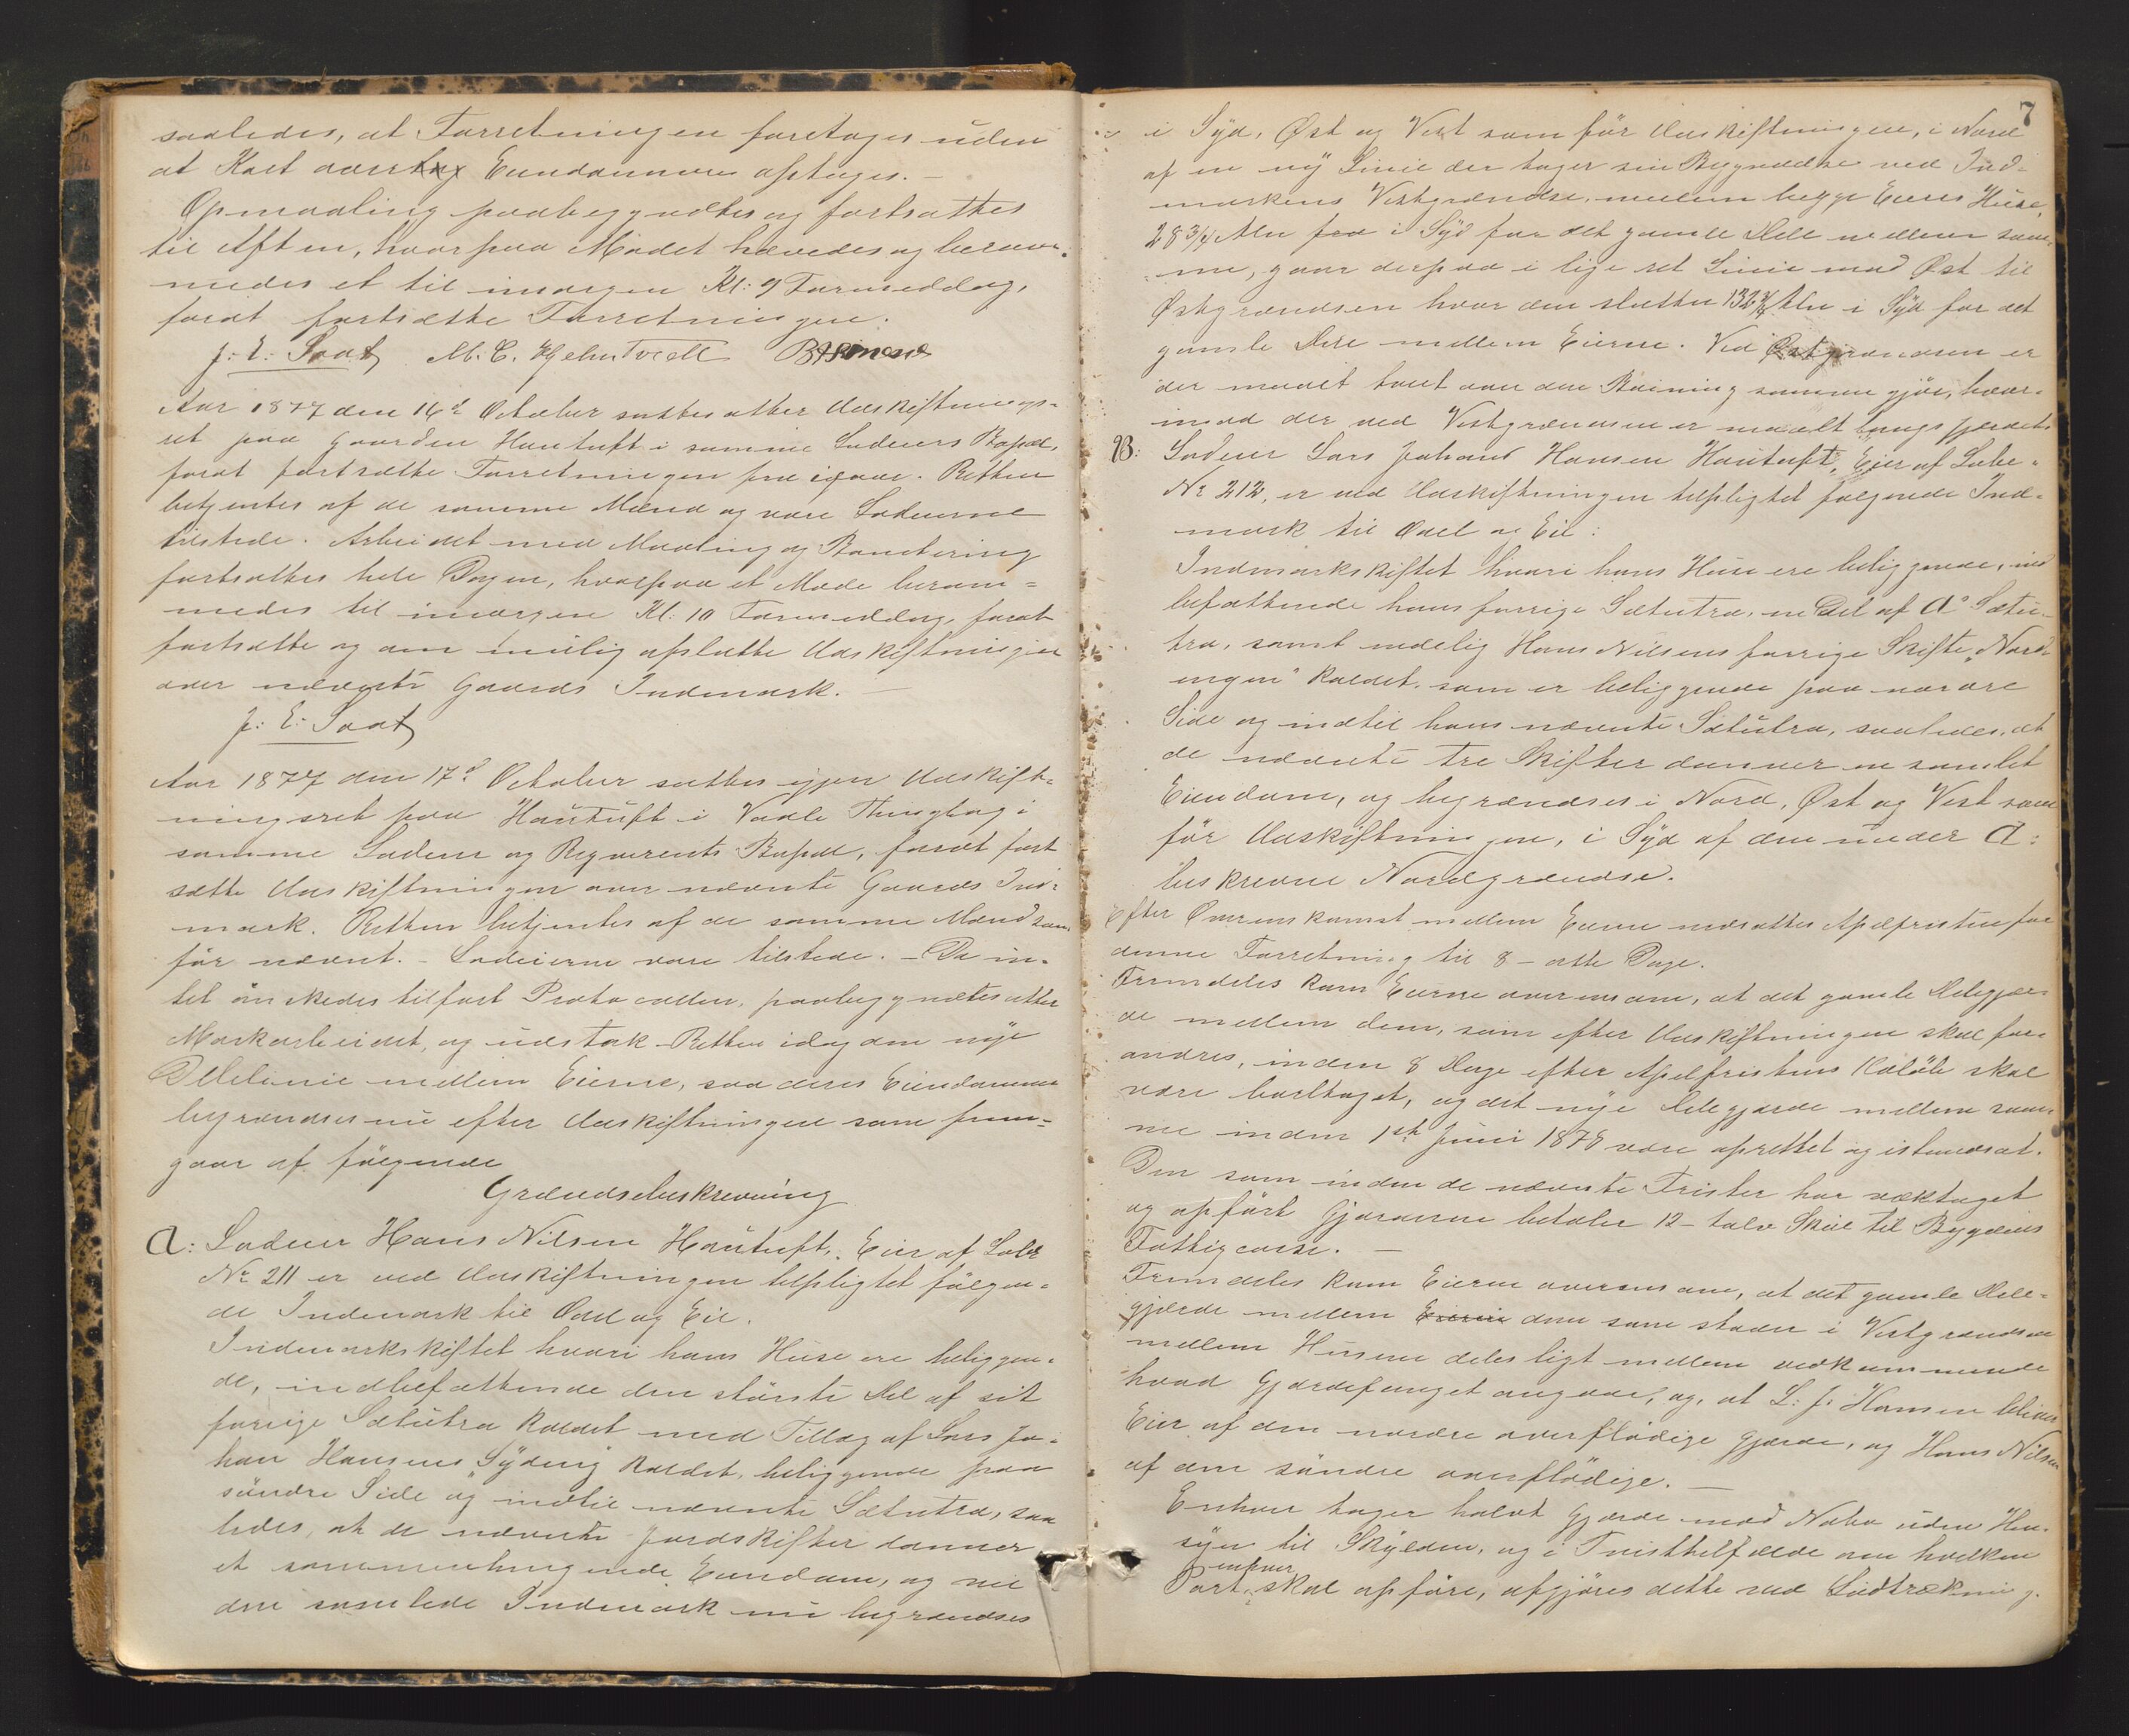 saaledes, at Forretningen foretages uden
at Kart over Eiendommen optages. –
Opmaaling paabegyndtes og fortsattes
til Aften, hvorpaa Mødet hævedes og beram-
medes et til imorgen Kl: 9 Formiddag,
forat fortsætte Forretningen.
J: E: Saat M. C.
Aar 1877 den 16de October sattes atter Udskiftnings-
ret paa Gaarden Hautuft i samme Lodeiers Bopæl,
forat fortsætte Forretningen fra igaar. Retten
betjentes af de samme Mænd og vare Lodeierne
tilstede. Arbeidet med Maaling og Bonitering
fortsattes hele Dagen, hvorpaa et Møde beram-
medes til imorgen Kl: 10 Formiddag, forat
fortsætte og om mulig afslutte Udskiftningen
over nævnte Gaards Indmark. –
J: E: Saat
Aar 1877 den 17de October sattes igjen Udskift-
ningsret paa Hautuft i Thinglag i
samme Lodeier og Reqvirents Bopæl, forat fort
sætte Udskiftningen over nævnte Gaards Ind-
mark. Retten betjentes af de samme Mænd som
før nævnt. – Lodeierne vare tilstede. – Da in-
tet ønskedes tilført Protocollen, paabegyndtes atter
Markarbeidet, og udstak Retten idag den nye
Delelinie mellem Eierne, saa deres Eiendomme
begrændses nu efter Udskiftningen som frem-
gaar af følgende
Grændsebeskrivning
A: Lodeier Hans Nilsen Hautuft, Eier af Løbe
No 211 er ved Udskiftningen tilpligtet følgen-
de Indmark til Odel og Eie.
Indmarkskiftet hvori hans Huse ere beliggen-
de, indbefattende den største Del af sit
forrige Sætutra kaldet med Tillæg af Lars Jo-
han Hansens Syding kaldet, beliggende paa
søndre Side og indtil nævnte Sætutra, saa
ledes, at de nævnte Jordskifter danner
et sammenhængende Eiendom, og
den samlede Indmark nu begrændses
7
i Syd, Øst og Vest som før Udskiftningen, i Nord
af en ny Linie der tager sin Begyndelse ved Ind-
markens Vestgrændse, mellem begge Eieres Huse,
28 3/4 Aln fra i Syd for det gamle Dele mellem sam-
me, gaar derpaa i lige ret Linie mod Øst til
Østgrændsen hvor den slutter 132 3/4 Aln i Syd for det
gamle Dele mellem Eierne. Ved Østgrændsen er
der maalt tvert over den Bøining samme gjør, hvor-
imod der ved Vestgrændsen er maalt langs Gjærdet.
B: Lodeier Lars Johan Hansen Hautuft, Eier af Løbe-
No 212, er ved Udskiftningen tilpligtet følgende Ind-
mark til Odel og Eie:
Indmarkskiftet hvori hans Huse ere beliggende, ind
befattende hans forrige Sætutra, en Del af A's Sætu-
tra, samt endelig Hans Nilsens forrige Skifte „Nord-
engen” kaldet, som er beliggende paa nordre
Side og indtil hans nævnte Sætutra, saaledes, at
de nævnte tre Skifter danner en samlet
Eiendom, og begrændses i Nord, Øst og Vest som
før Udskiftningen, i Syd af den under A:
beskrevne Nordgrændse.
Efter Overenskomst mellem Eierne nedsattes Apelfristen for
denne Forretning til 8 – otte Dage.
Fremdeles kom Eierne overens om, at det gamle Delegjær-
de mellem dem, som efter Udskiftningen skal for-
andres, inden 8 Dage efter Apelfristens Udløb skal
være borttaget, og det nye Delegjærde mellem sam-
me inden 1ste Juni 1878 være oprettet og istandsat.
Den som inden de nævnte Frister har væktaget
og opført Gjærderne betaler 12 – tolv Skil til Bygdens
Fattigcasse. –
Fremdeles kom Eierne overens om, at det gamle Dele-
gjærde mellem Eierne dem som staar i Vestgrændsen
mellem Husene deles ligt mellem vedkommende
hvad Gjærdefanget angaar, og, at L: J: Hansen bliver
Eier af den nordre overflødige Gjærde, og Hans Nilsen
af den søndre overflødige. –
Enhver tager halvt Gjærde mod Nabo uden Hen-
syn til Skylden, og i Tvisttilfælde om hvilken
Part enhver skal opføre, afgjøres dette ved Lodtrækning.